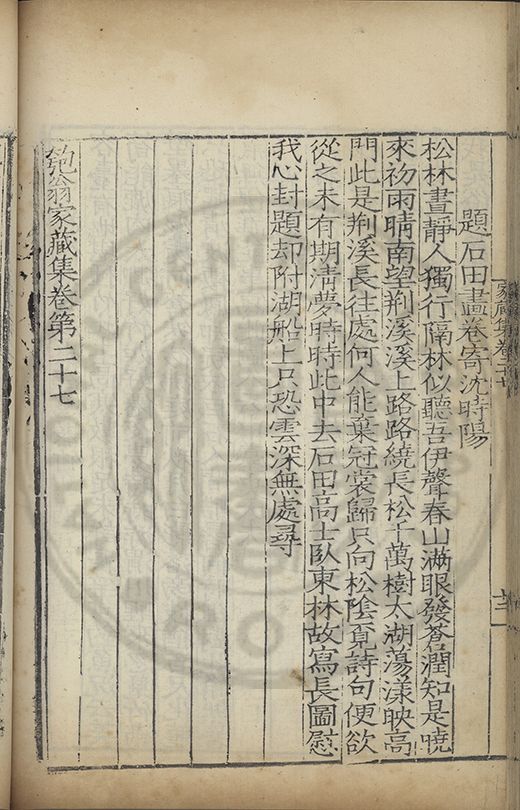 題石田畫卷寄沈時陽
松林晝靜人獨行隔林似聽吾伊聲春山滿眼發蒼潤知是曉
來初雨晴南望荆溪溪上路路繞長松千萬樹太湖蕩漾映高
門此是荆溪長往處何人能棄冠裳歸只向松陰覓詩句便欲
從之未有期清夢時時此中去石田高士臥東林故寫長圖慰
我心封題却附湖船上只恐雲深無處尋
匏翁家藏集卷第二十七